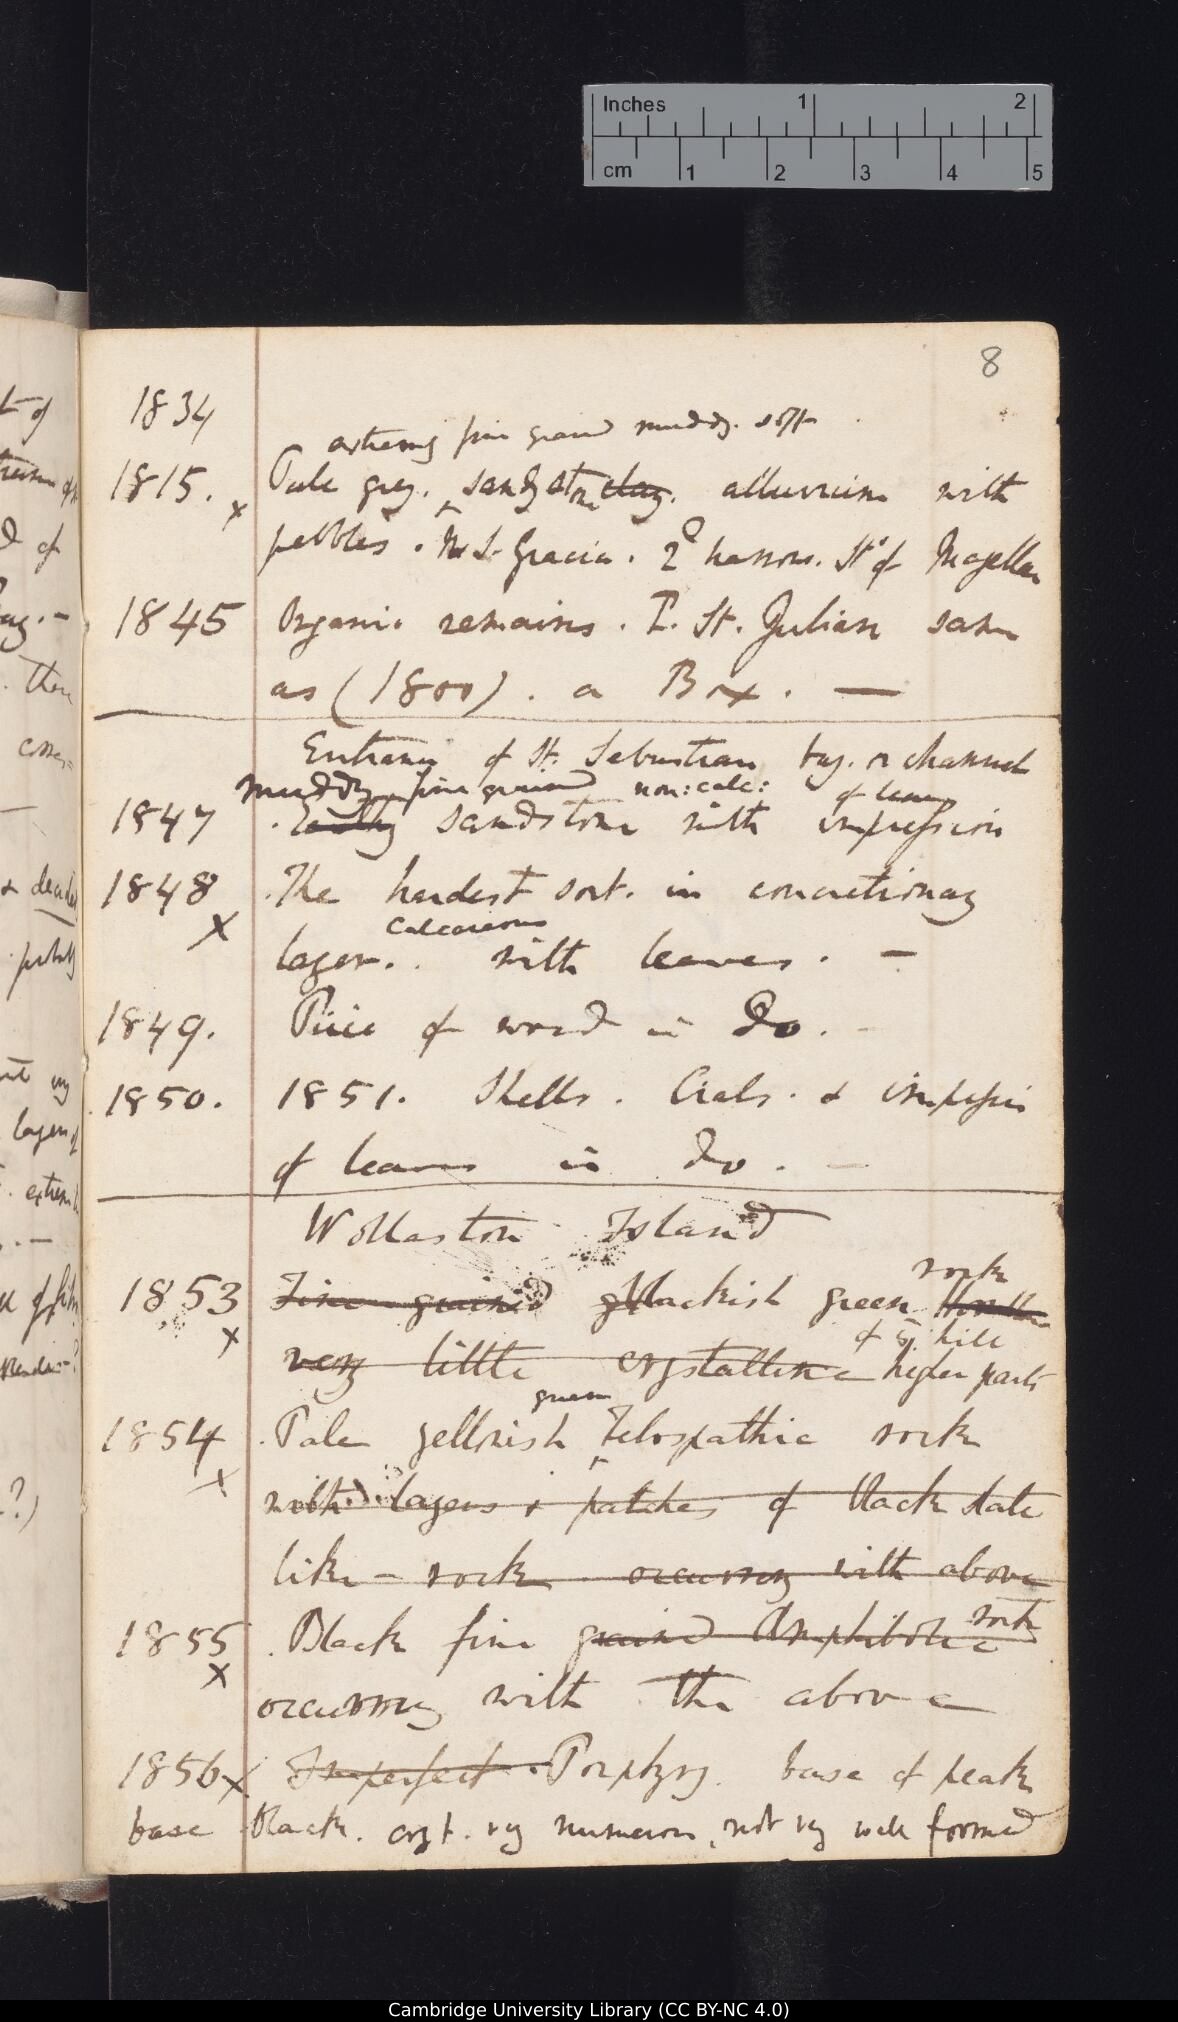 Inches 1 2
cm 1 2 3 4 5
8
1834
extremely fine grained muddy. soft
1815. Pale grey. sandstone clay. alluvium with
x
pebbles. St. Gracia. 2d narrow. St. of Magellan
1845 Organic remains. P. St. Julian same
as (1800). a Box. —
Entrance of St. Sebastian bay. or channel
muddy fine grained non: calc: of leaves
1847 Earthy sandstone with impression
1848 The hardest sort. in concretionary
x calcareous
layer. with leaves. —
1849. Piece of wood in Do. —
1850. 1851. Shells. Crabs. & impression
of leaves in Do. —
Wollaston Island
rock
1853 Fine grained blackish green
x of hill
very little crystalline higher parts
green
1854 Pale yellowish Felspathic rock
x
with layers & patches of black slate
like - rock occurring with above
rock
1855 Black fine grained Amphibolic
x
occurring with the above
1856 x Imperfect Porphyry. base of peak
base black. cryst. very numerous, not very well formed
t of
d of
. There
layers of
.?)
Cambridge University Library (CC BY-NC 4.0)